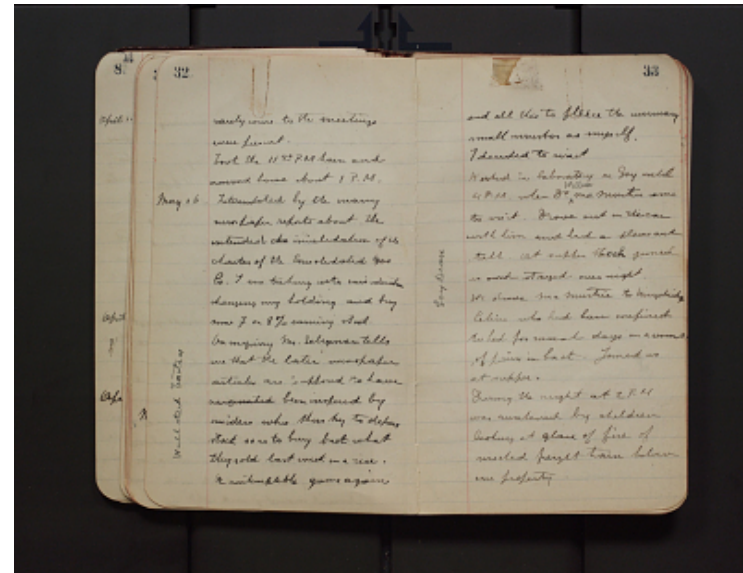 8
32
April
rarely come to the meetings
were present.
Took the 11 P.M. train and
arrived home about 1 P.M.
May 16
by the many
newspaper reports about the
intended of its
charter of the Consolidated Gas
Co. I am taking into consideration
changing my holding and buy
some 7 or 8% earning stock.
On inquiry Mr. Seligman tells
me that the later newspaper
articles are supposed to have
been inspired by
insiders who thus try to depress
stock so as to buy back what
they sold last week on a rise.
A contemptible game again
Wall Street
April
33
and all this to fleece the unwary
small investor as myself.
I decided to wait
Worked in laboratory on Soy until
4 P.M. when Dr. William came
to visit. Drove out in the car
with him and had a pleasant
talk. At supper
and stayed over night.
We drove to
Celine who had been confined
to bed for several days on account
of pains in back. Joined us
at supper.
During the night at 2 P.M
was awakened by children
looking at glare of fire of
wrecked freight train below
our property